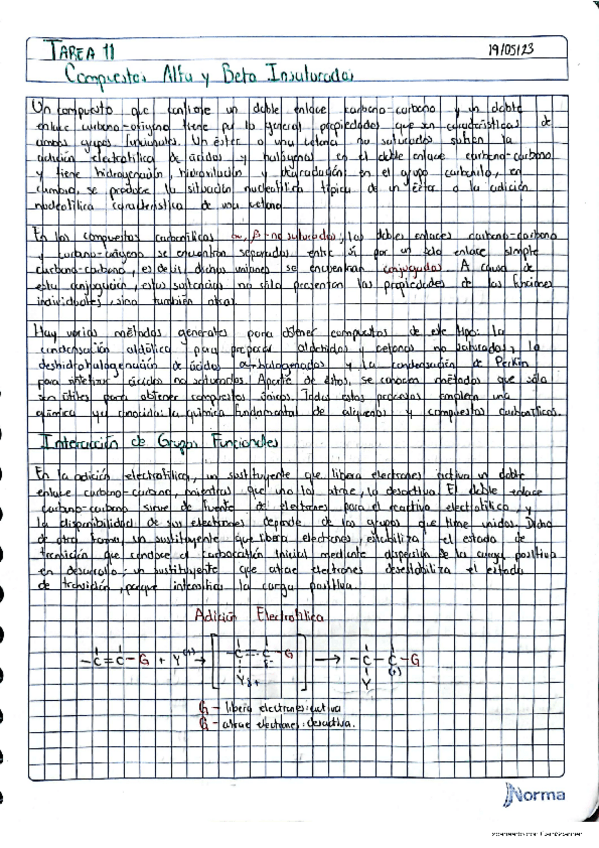 TAREA 11 19/05/23
Compuestos Alfa y Beta Insaturados
Un compuesto que contiene un doble enlace carbono-carbono y un doble
enlace carbono-oxígeno tiene por lo general propiedades que son características de
ambos grupos funcionales. Un éster o una cetona no saturados sufren la
adición electrofílica de ácidos y halógenos en el doble enlace carbono-carbono
y tiene hidrogenación, hidroxilación y degradación, en el grupo carbonilo, en
cambio, se produce la situación nucleofílica típica de un éster o la adición
nucleofílica característica de una cetona.
En los compuestos carbonílicos α, β-no saturados, los dobles enlaces carbono-carbono
y carbono-oxígeno se encuentran separados entre sí por un solo enlace simple
carbono-carbono, es decir, dichas uniones se encuentran conjugadas. A causa de
esta conjugación, estas sustancias no sólo presentan las propiedades de las funciones
individuales, sino también otras.
Hay varios métodos generales para obtener compuestos de este tipo: la
condensación aldólica para preparar aldehídos y cetonas no saturados, la
deshidrohalogenación de ácidos α-halogenados y la condensación de Perkin
para sintetizar ácidos no saturados. Aparte de éstos, se conocen métodos que sólo
son útiles para obtener compuestos únicos. Todos estos procesos emplean una
química ya conocida: la química fundamental de alquenos y compuestos carbonílicos.
Interacción de Grupos Funcionales
En la adición electrofílica, un sustituyente que libera electrones activa un doble
enlace carbono-carbono, mientras que uno los atrae, lo desactiva. El doble enlace
carbono-carbono sirve de fuente de electrones para el reactivo electrofílico, y
la disponibilidad de sus electrones depende de los grupos que tiene unidos. Dicho
de otra forma, un sustituyente que libera electrones, estabiliza el estado de
transición que conduce al carbocatión inicial mediante dispersión de la carga positiva
en desarrollo; un sustituyente que atrae electrones desestabiliza el estado
de transición, porque intensifica la carga positiva.
Adición Electrofílica
-C=C-G + Y(+) → [-C=C-G] → -C-C-G
Y δ+ Y (+)
G - libera electrones: activa
G - atrae electrones: desactiva.
Norma